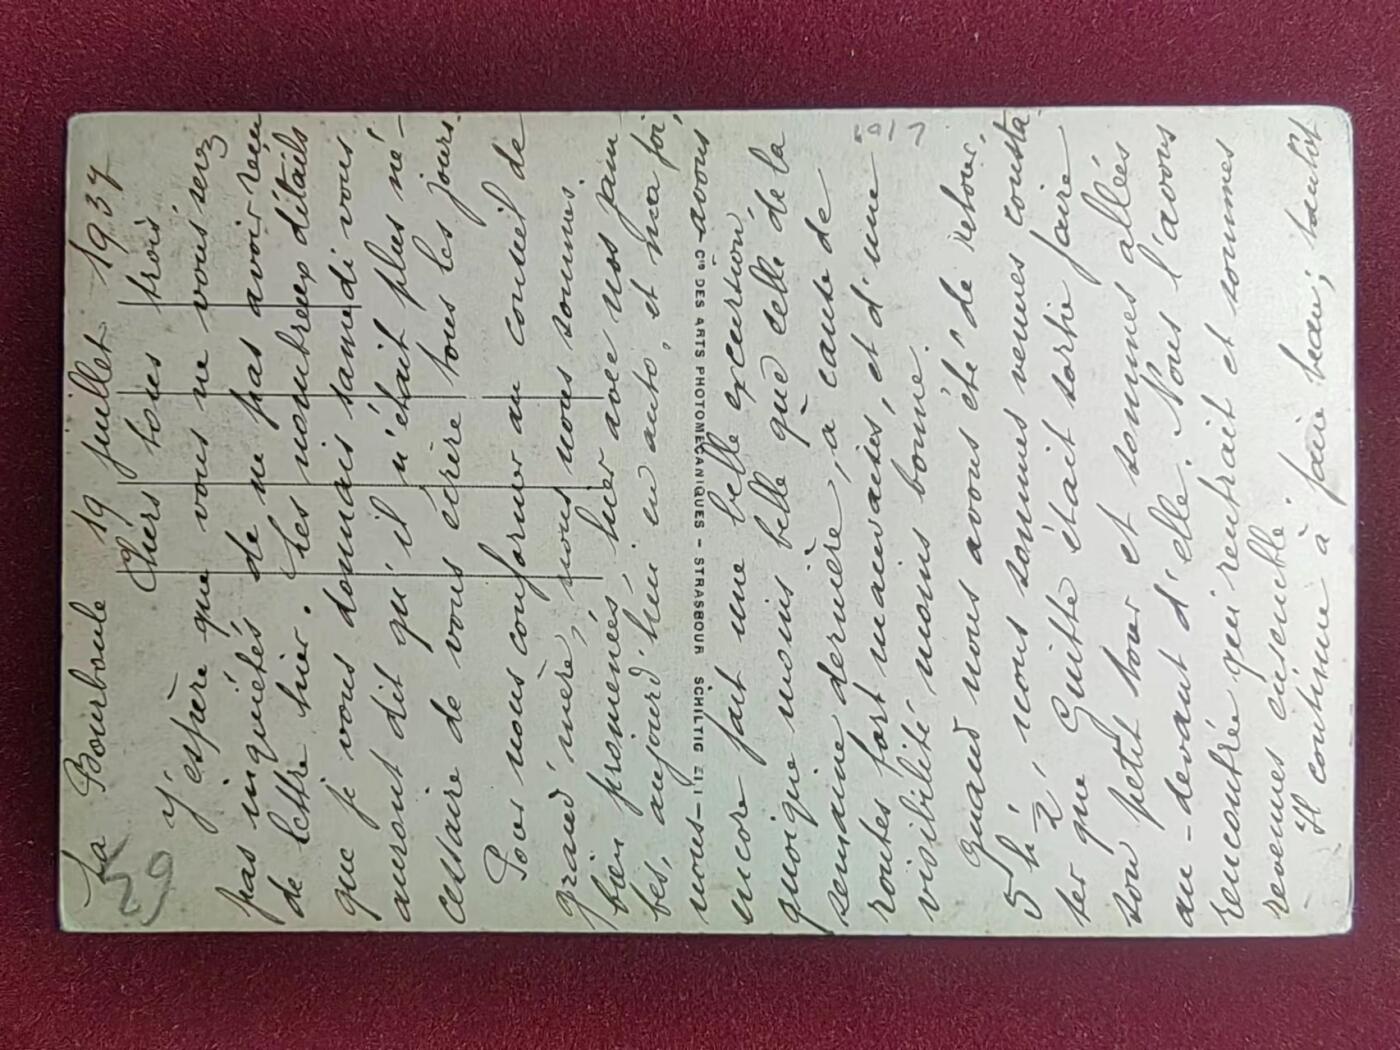 La Bourboule 19 juillet 1937
Chers tous trois
J'espère que vous ne vous serez
pas inquiétés de ne pas avoir reçu
de lettre hier. Les nombreux détails
que je vous donnais samedi vous
auront dit qu'il n'était plus né-
cessaire de vous écrire tous les jours.
Pour nous conformer au conseil de
grand'mère, nous nous sommes
bien promenées, hier avec nos jam
bes, aujourd'hui en auto, et ma foi,
nous avons
encore fait une belle excursion,
quoique moins belle que celle de la
semaine dernière, à cause de
routes fort mauvaises, et d'une
visibilité moins bonne.
Quand nous avons été de retour,
5 h ½, nous sommes venues consta-
ter que Guitte était sortie faire
son petit tour et sommes allées
au-devant d'elle. Nous l'avons
rencontrée qui rentrait et sommes
revenues ensemble.
Il continue à faire beau; tantôt
CIE DES ARTS PHOTOMÉCANIQUES – STRASBOUR SCHILTIG
29